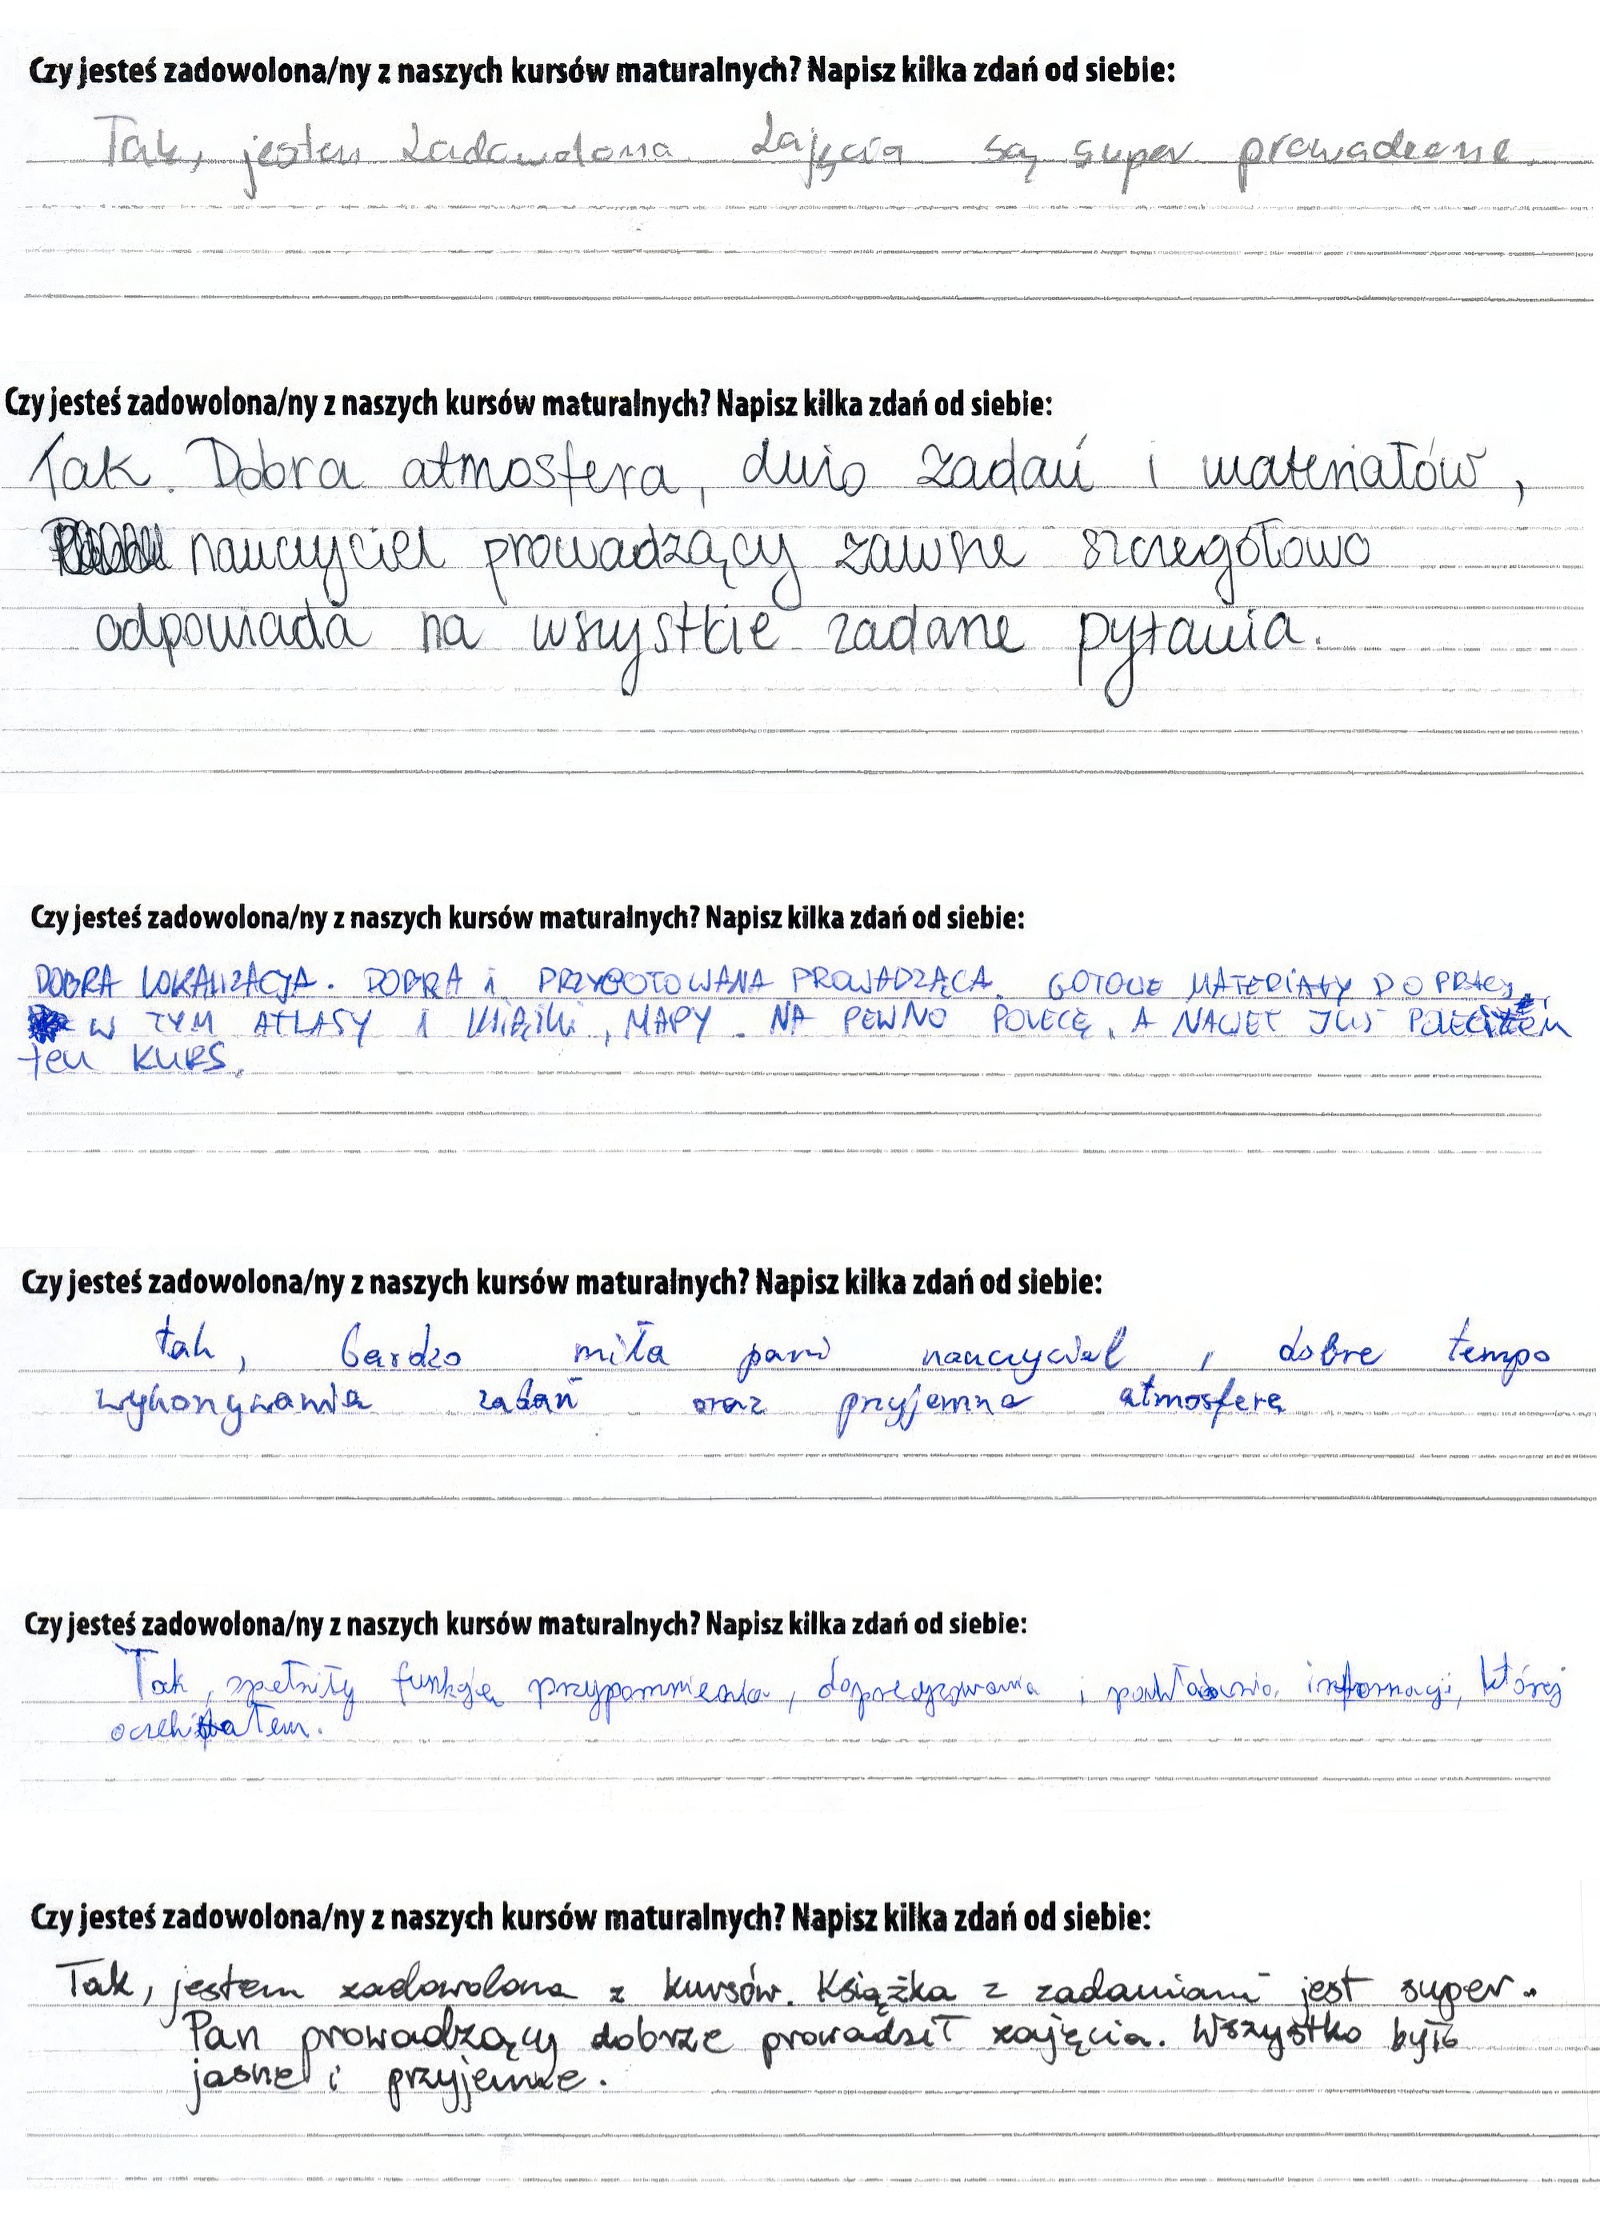 Czy jesteś zadowolona/ny z naszych kursów maturalnych? Napisz kilka zdań od siebie:
Tak, jestem zadowolona. Zajęcia są super prowadzone.
Czy jesteś zadowolona/ny z naszych kursów maturalnych? Napisz kilka zdań od siebie:
Tak. Dobra atmosfera, dużo zadań i materiałów,
nauczyciel prowadzący zawsze szczegółowo
odpowiada na wszystkie zadane pytania.
Czy jesteś zadowolona/ny z naszych kursów maturalnych? Napisz kilka zdań od siebie:
DOBRA LOKALIZACJA. DOBRA i PRZYGOTOWANA PROWADZĄCA. GOTOWE MATERIAŁY DO PRACY,
W TYM ATLASY I KSIĄŻKI, MAPY. NA PEWNO POLECĘ, A NAWET JUŻ POLECIŁEM
ten KURS.
Czy jesteś zadowolona/ny z naszych kursów maturalnych? Napisz kilka zdań od siebie:
tak, bardzo miła pani nauczyciel, dobre tempo
wykonywania zadań oraz przyjemna atmosfera
Czy jesteś zadowolona/ny z naszych kursów maturalnych? Napisz kilka zdań od siebie:
Tak, spełniły funkcję przypomnienia, doprecyzowania i poukładania informacji, której
oczekiwałem.
Czy jesteś zadowolona/ny z naszych kursów maturalnych? Napisz kilka zdań od siebie:
Tak, jestem zadowolona z kursów. Książka z zadaniami jest super.
Pan prowadzący dobrze prowadził zajęcia. Wszystko było
jasne i przyjemne.